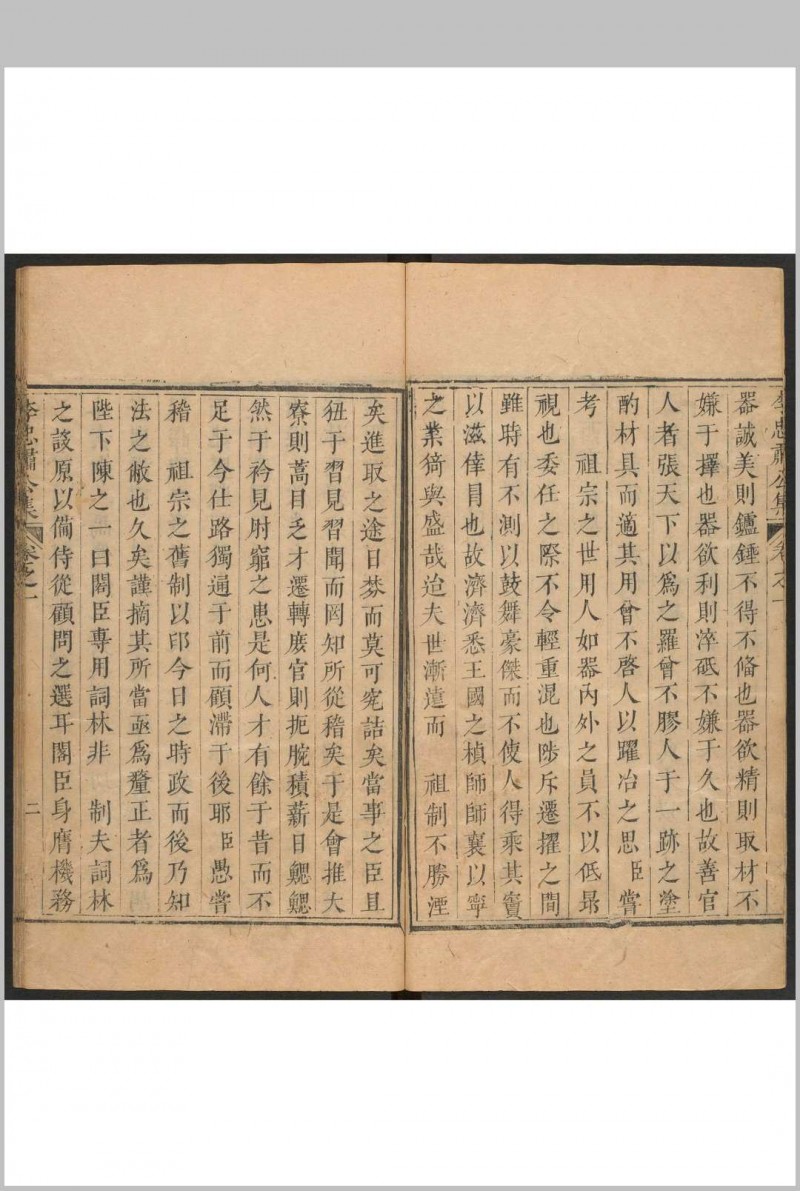 李忠肅公集 卷之一
器誠美則鑪錘不得不備也器欲精則取材不
嫌于擇也器欲利則淬砥不嫌于久也故善官
人者張天下以爲之羅曾不膠人于一跡之塗
酌材具而適其用曾不啓人以躍冶之思臣嘗
考 祖宗之世用人如器內外之員不以低昻
視也委任之際不令輕重混也陟斥遷擢之間
雖時有不測以鼓舞豪傑而不使人得乘其竇
以滋倖目也故濟濟悉王國之楨師師襄以寧
之業猗與盛哉迨夫世漸遠而 祖制不勝湮
矣進取之途日棼而莫可究詰矣當事之臣且
狃于習見習聞而罔知所從稽矣于是會推大
寮則蒿目乏才遷轉庶官則扼腕積薪日鰓鰓
然于衿見肘窮之患是何人才有餘于昔而不
足于今仕路獨通于前而顧滯于後耶臣愚嘗
稽 祖宗之舊制以印今日之時政而後乃知
法之敝也久矣謹摘其所當亟爲釐正者爲
陛下陳之一曰閣臣專用詞林非 制夫詞林
之設原以備侍從顧問之選耳閣臣身膺機務
李忠肅公集 卷之一 二